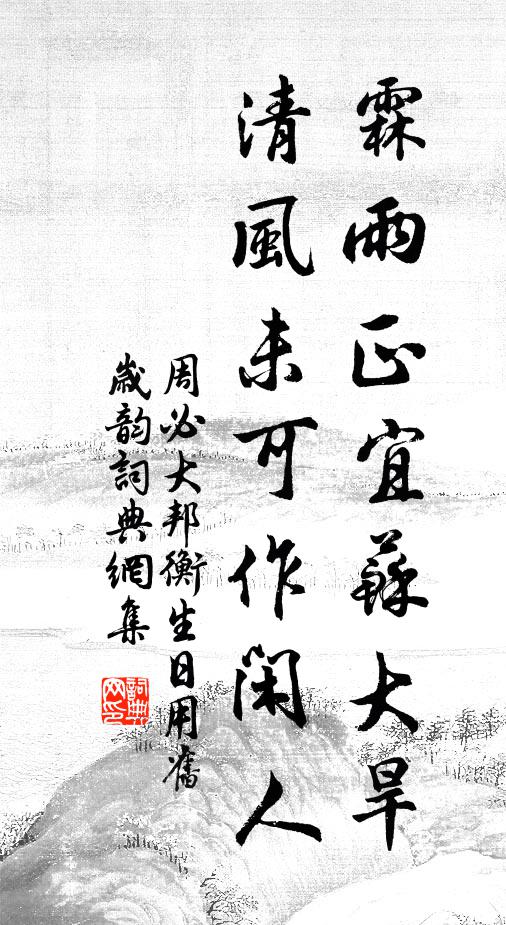 霖雨正宜蘇大旱
清風未可作閑人
周必大邦衡生日用舊
歲韵詞典網集
詞典網印